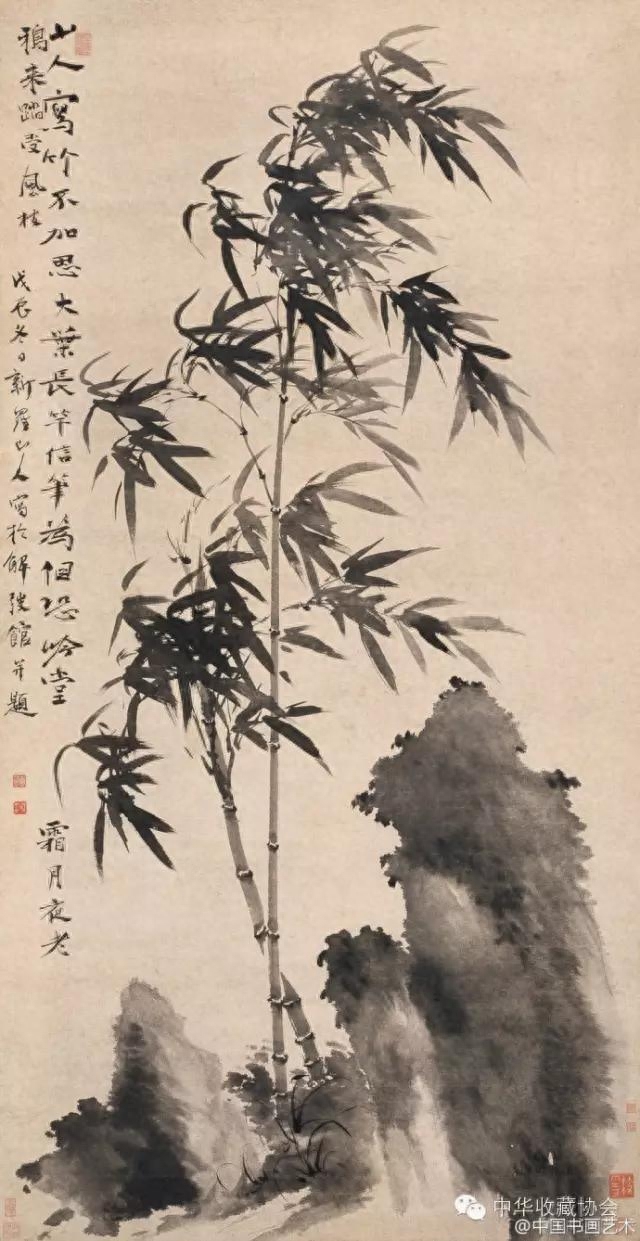 山人寫竹不加思大葉長竿信筆為但恐吟堂
霜月夜老
鴉来踏受風枝
戊辰冬日新羅山人寫於解弢館并題
中华收藏协会
@中国书画艺术